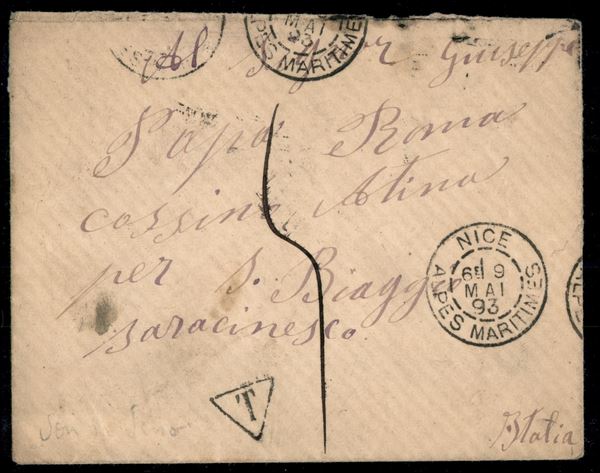 Al Signor Giuseppe
Papa Roma
cassino Atina
per S. Biaggio
saracinesco
Italia
NICE
6E 9
MAI
93
ALPES MARITIMES
MAI
93
ALPES MARITIMES
T